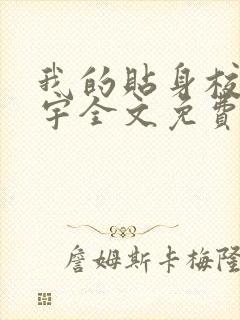 我的貼身校
宇全文免費
詹姆斯卡梅隆